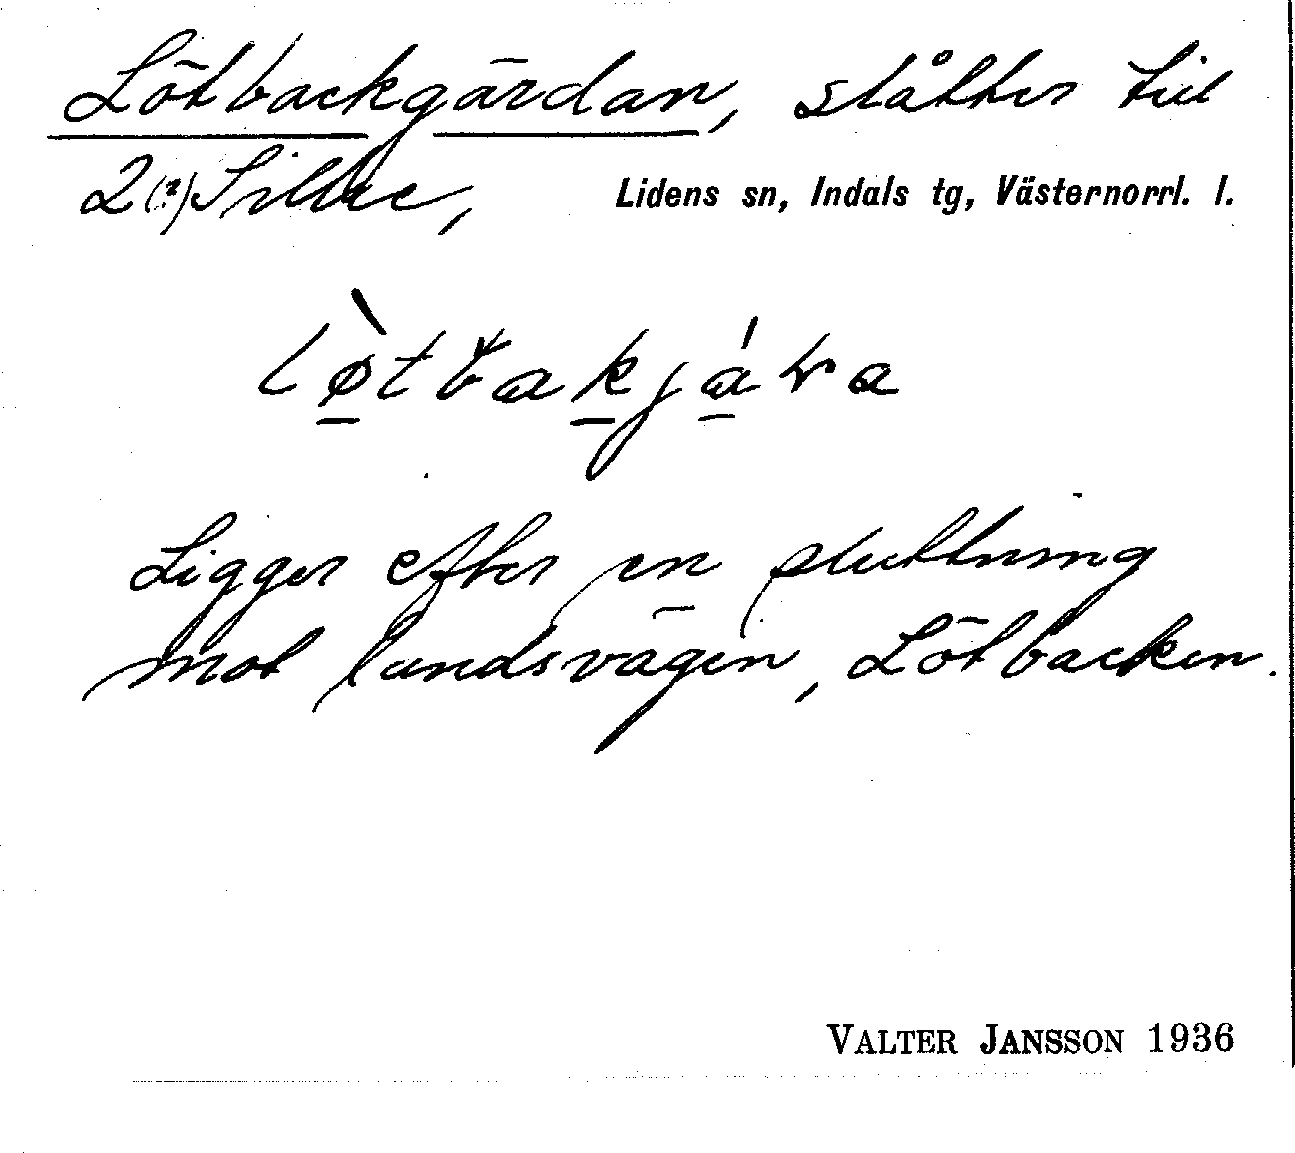 Lötbackgärdan, slåtter till
2(?) Sillre, Lidens sn, Indals tg, Västernorrl. l.
Ligger efter en sluttning
mot landsvägen, Lötbacken.
VALTER JANSSON 1936